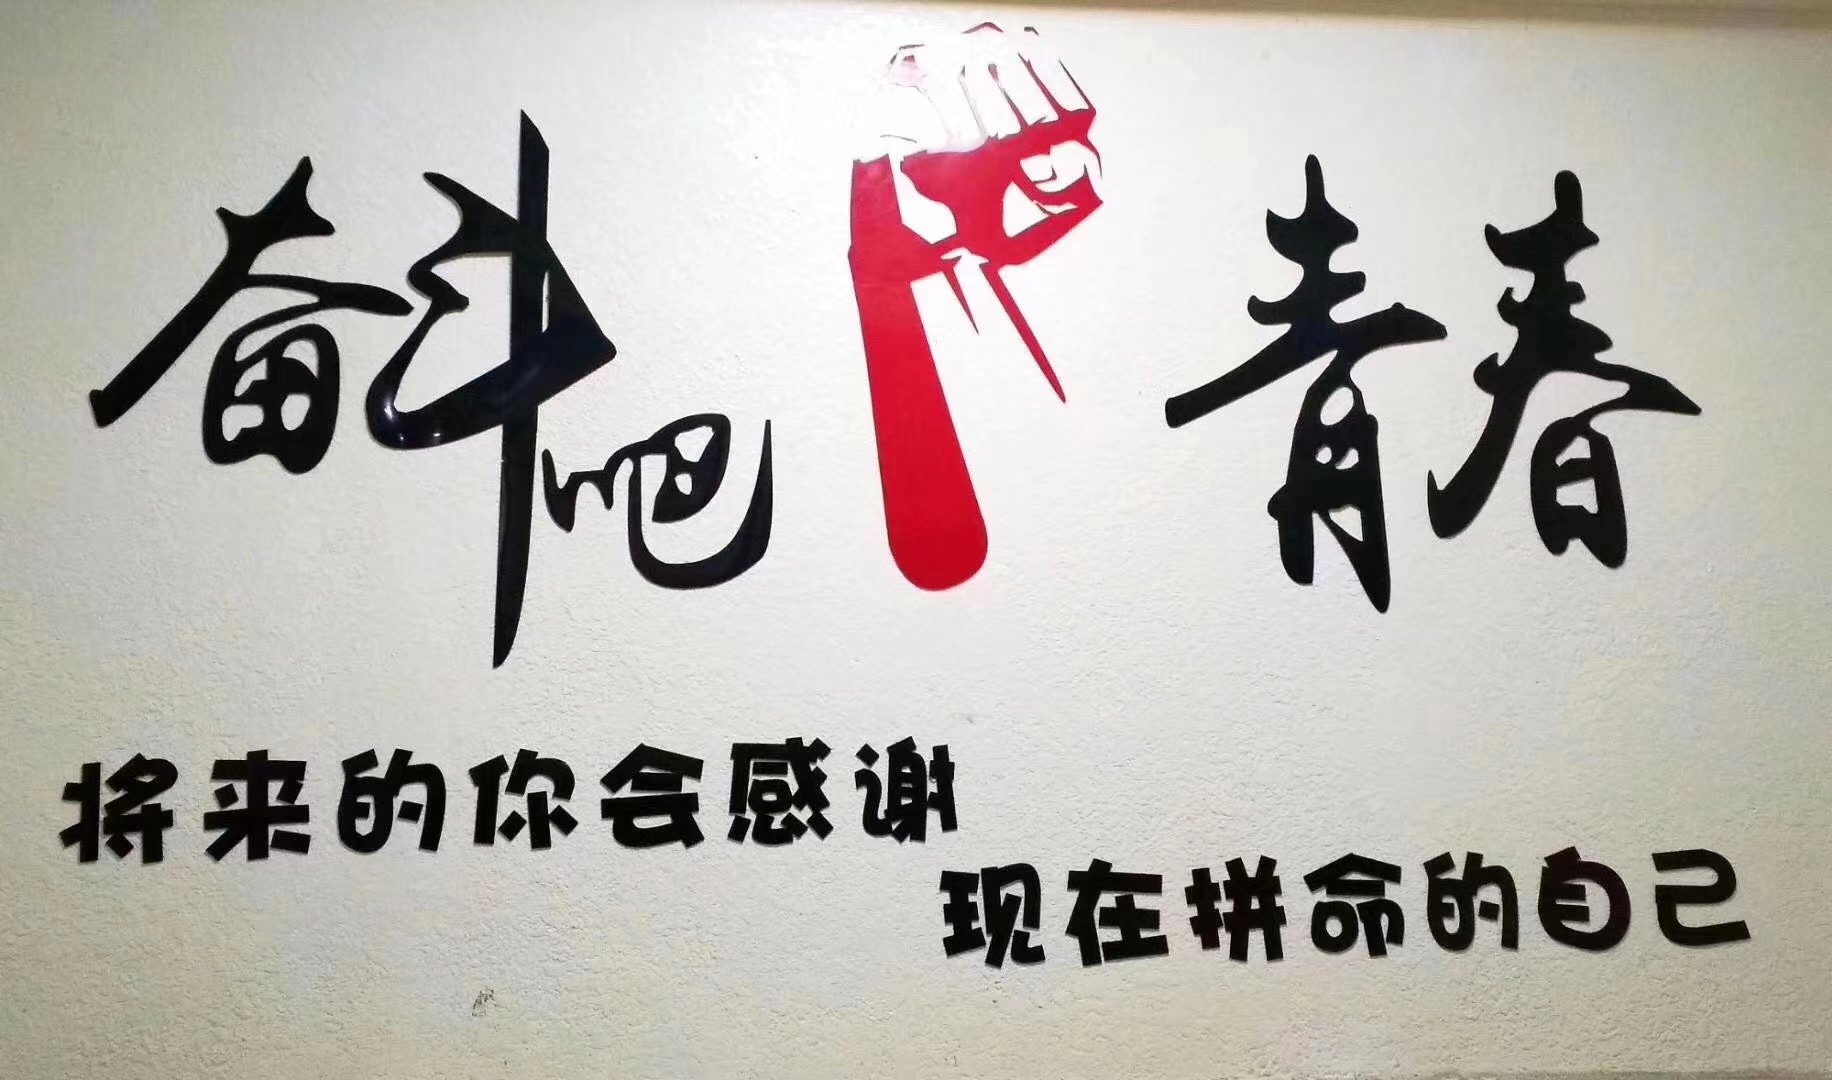 奋斗吧 青春
将来的你会感谢
现在拼命的自己